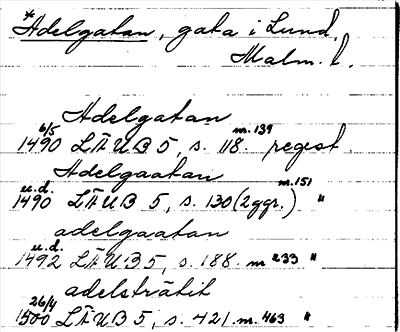 *Adelgatan, gata i Lund,
Malm. l.
Adelgatan
6/5 1490 LÄUB 5, s. 118. m. 139 regest.
Adelgaatan
u.d. 1490 LÄUB 5, s. 130 (2 ggr.) m. 151 "
adelgaatan
u.d. 1492 LÄUB 5, s. 188. m 233 "
adelsträtit
26/4 1500 LÄUB 5, s. 421. m. 463 "